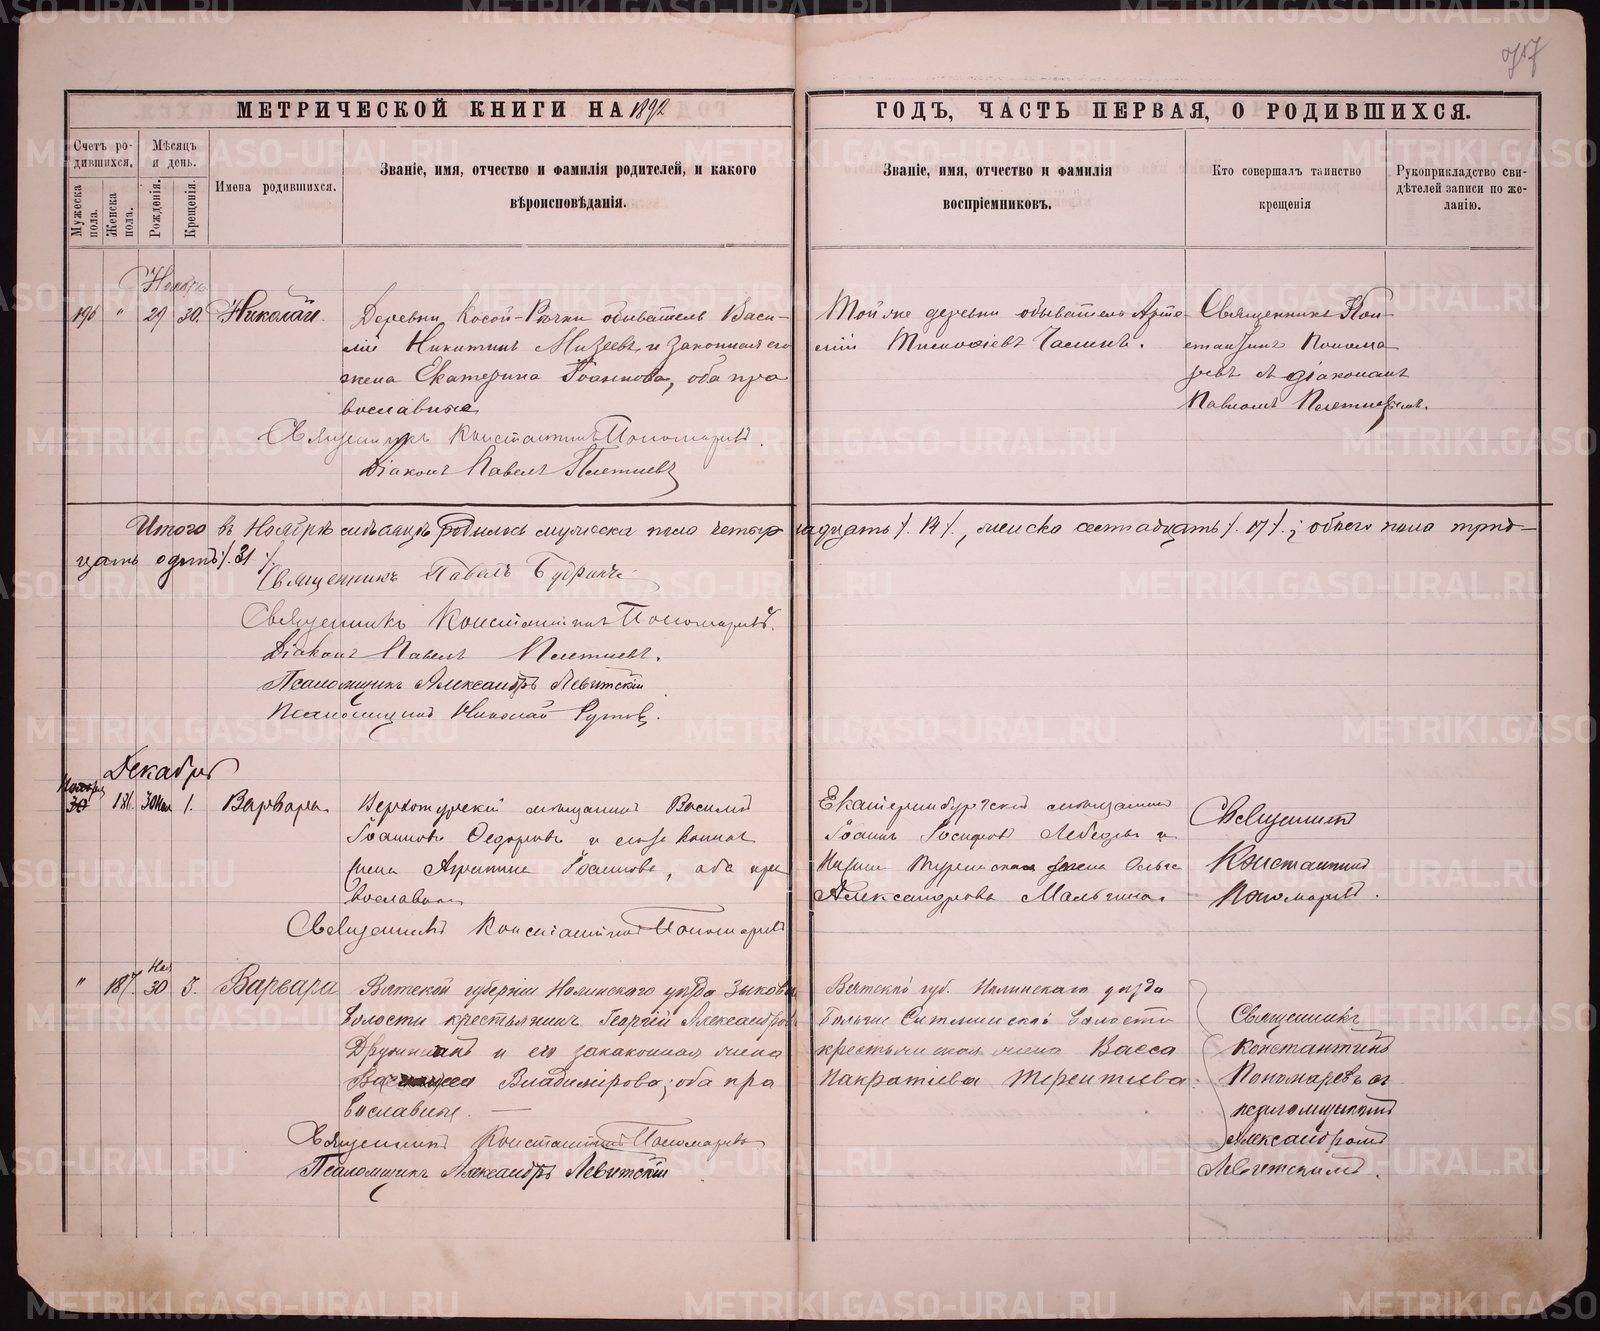 МЕТРИЧЕСКОЙ КНИГИ НА 1892
ГОДЪ, ЧАСТЬ ПЕРВАЯ, О РОДИВШИХСЯ.
Счетъ ро-
дившихся.
Мѣсяцъ
и день.
Мужеска
пола.
Женска
пола.
Рожденія.
Крещенія.
Имена родившихся.
Званіе, имя, отчество и фамилія родителей, и какого
вѣроисповѣданія.
Званіе, имя, отчество и фамилія
воспріемниковъ.
Кто совершалъ таинство
крещенія
Рукоприкладство сви-
дѣтелей записи по же-
ланію.
Ноября
196 " 29 30. Николай.
Деревни Косой-Рѣчки обыватель Васи-
лій Никитинъ Мизеевъ и законная его
жена Екатерина Іоаннова, оба пра
вославные
Священникъ Константинъ Пономаревъ.
Діаконъ Павелъ Плетневъ
Той же деревни обыватель Арте-
мій
Священникъ Кон-
стантинъ Понома
ревъ съ діакономъ
Павломъ Плетневымъ.
Итого въ Ноябрѣ мѣсяцѣ родилось мужеска пола четыр надцать /. 14 /., женска семнадцать /. 17 /.; обоего пола трид-
цать одинъ /. 31 /.
Священникъ Павелъ
Священникъ Константинъ Пономаревъ.
Діаконъ Павелъ Плетневъ.
Псаломщикъ Александръ Левитскій
Псаломщикъ Николай
Декабрь
30 181. 30 Ноя 1. Варвара
Верхотурскій мѣщанинъ Василій
Іоанновъ Федоровъ и его законная
жена Агриппина Іоаннова, оба пра
вославные
Священникъ Константинъ Пономаревъ
Екатеринбургскій мѣщанинъ
Іоаннъ Іосифовъ Лебедевъ и
Нижне Туринская жена Ольга
Александрова Мальгина.
Священникъ
Константинъ
Пономаревъ.
Ноя
" 187. 30 3. Варвара
Вятской губерніи Нолинскаго уѣзда Зыков
волости крестьянинъ Георгій Александров
Дружининъ и его законная жена
Владимірова; оба пра
вославные.
Священникъ Константинъ Пономаревъ
Псаломщикъ Александръ Левитскій
Вятской губ. Нолинскаго уѣзда
Больше Ситминской волости
крестьянская жена Васса
Панкратіева Терентіева.
Священникъ
Константинъ
Пономаревъ съ
псаломщикомъ
Александромъ
Левитскимъ.
METRIKI.GASO-URAL.RU